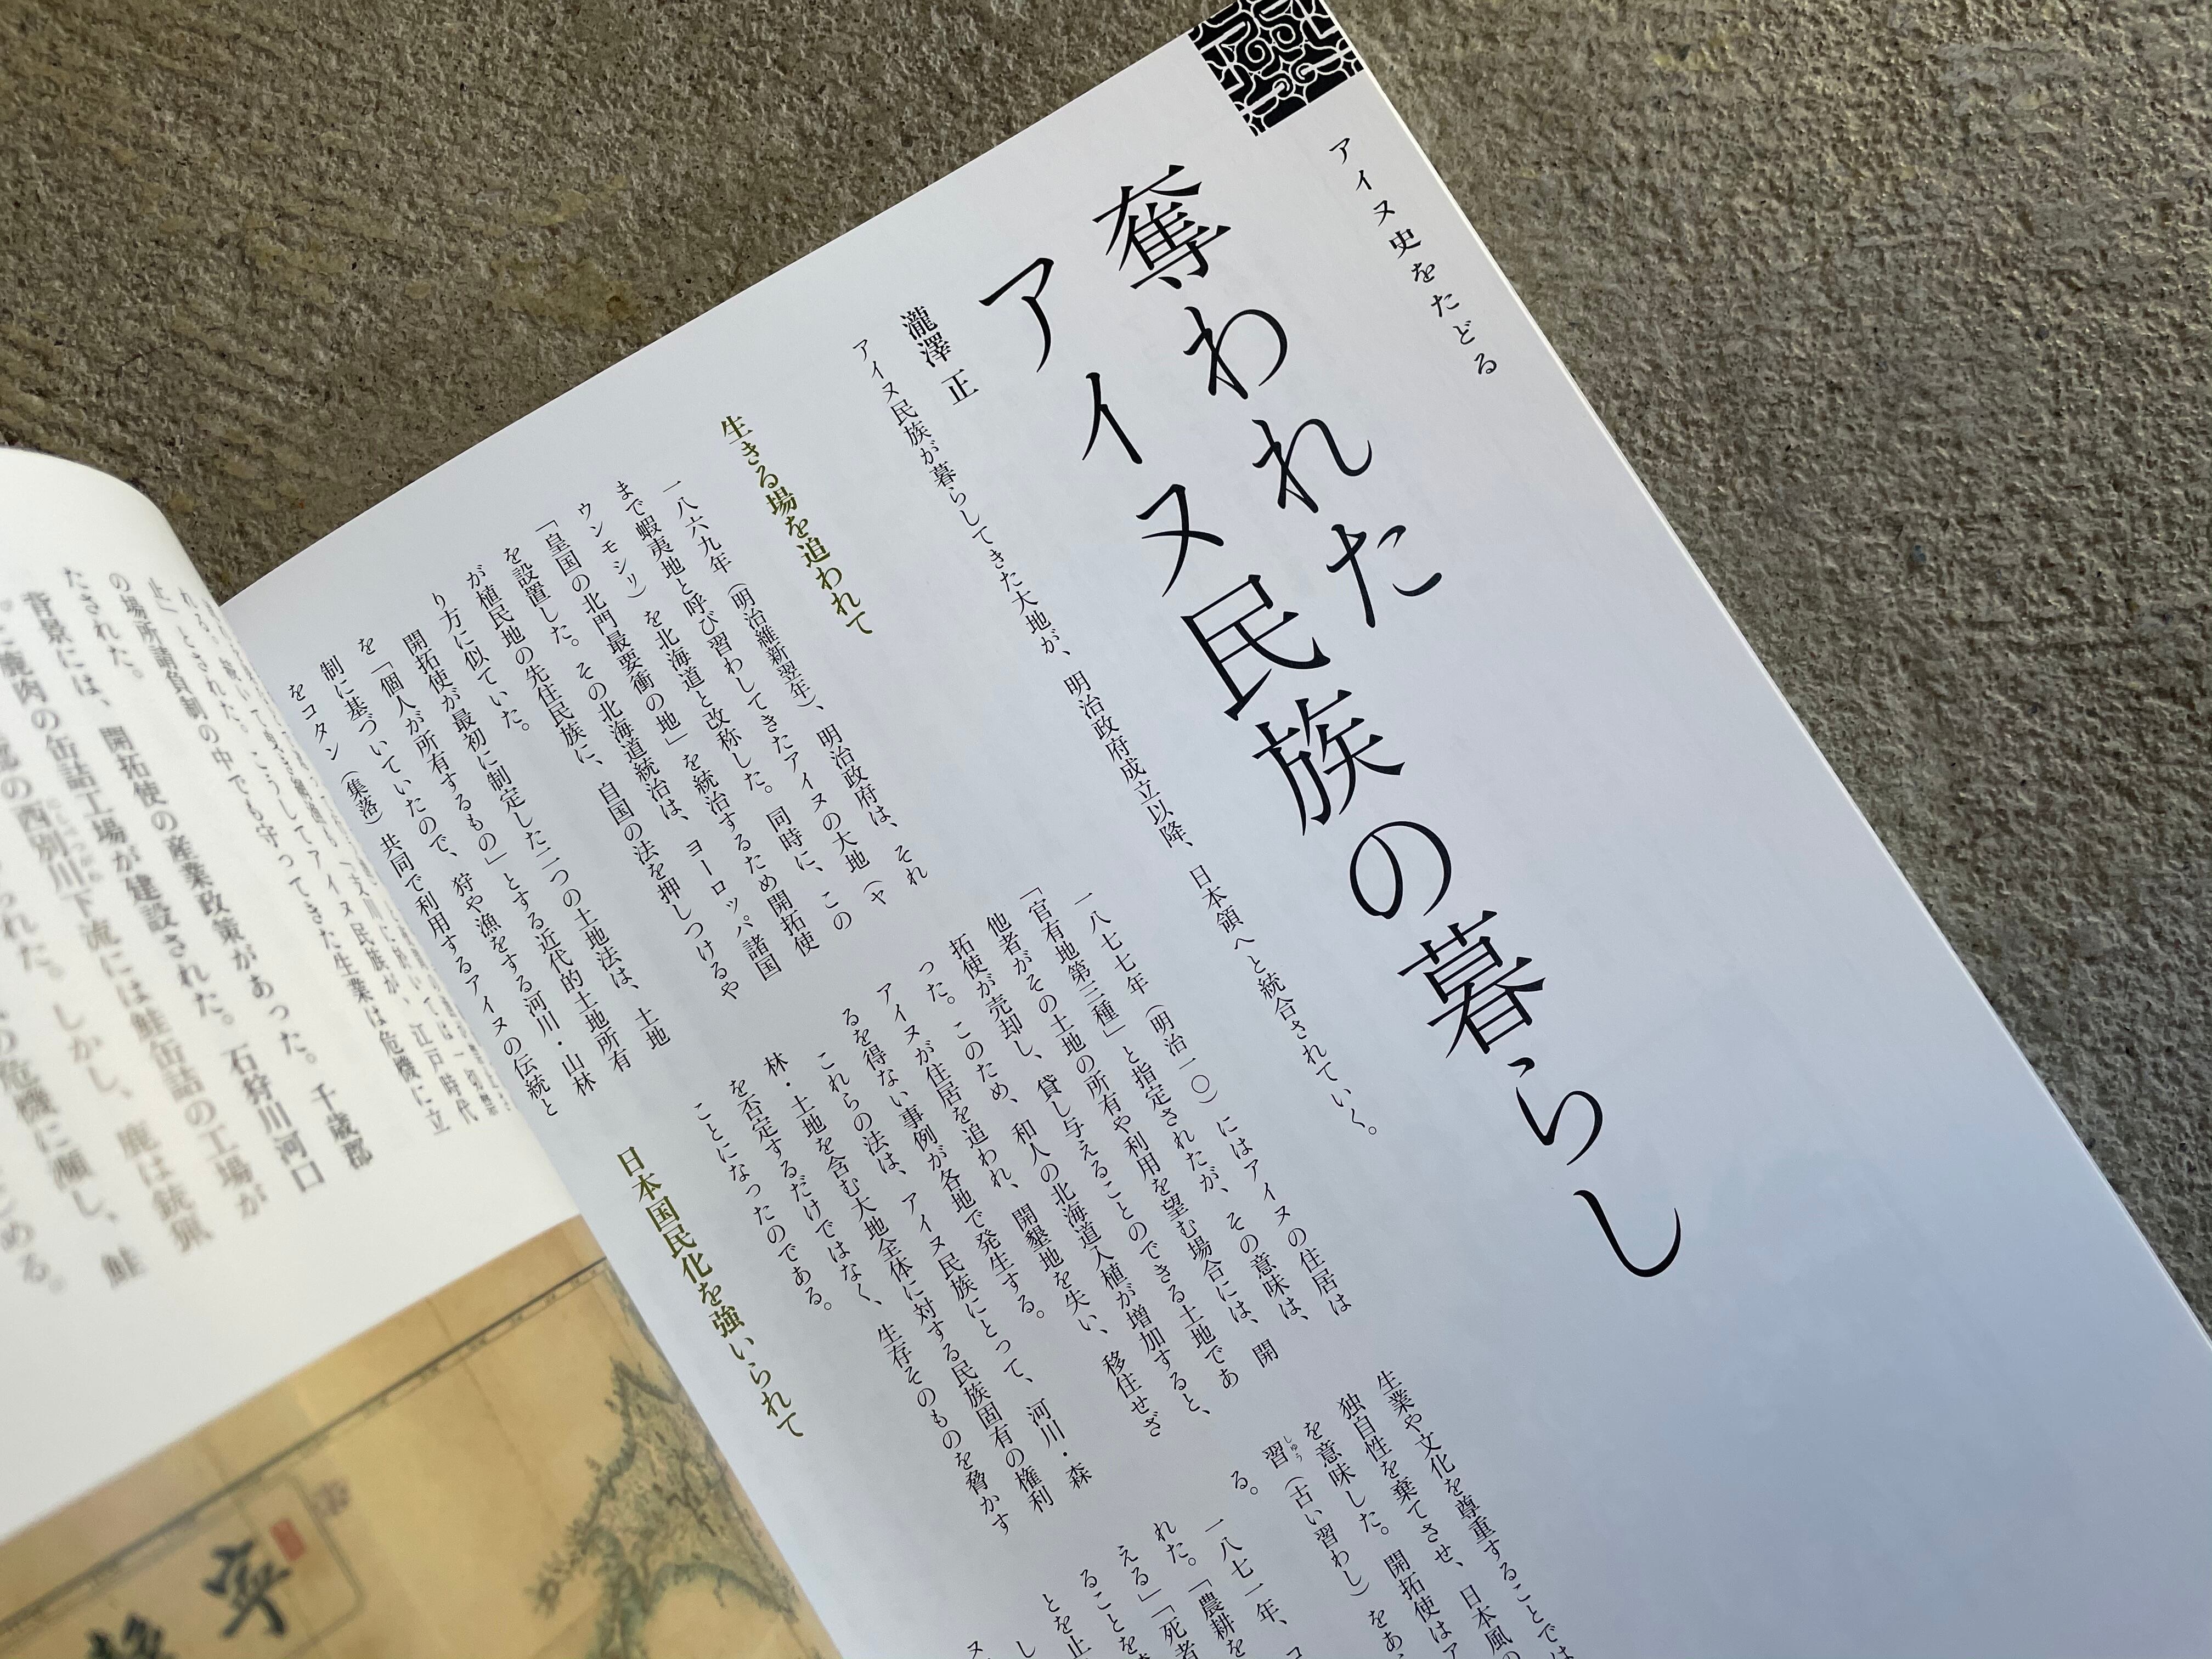 アイヌ史をたどる
奪われた
アイヌ民族の暮らし
瀧澤 正
アイヌ民族が暮らしてきた大地が、明治政府成立以降、日本領へと統合されていく。
生きる場を追われて
一八六九年（明治維新翌年）、明治政府は、それ
まで蝦夷地と呼び習わしてきたアイヌの大地（ヤ
ウンモシリ）を北海道と改称した。同時に、この
「皇国の北門最要衝の地」を統治するため開拓使
を設置した。その北海道統治は、ヨーロッパ諸国
が植民地の先住民族に、自国の法を押しつけるや
り方に似ていた。
開拓使が最初に制定した二つの土地法は、土地
を「個人が所有するもの」とする近代的土地所有
制に基づいていたので、狩や漁をする河川・山林
をコタン（集落）共同で利用するアイヌの伝統と
一八七七年（明治一〇）にはアイヌの住居は
「官有地第三種」と指定されたが、その意味は、
他者がその土地の所有や利用を望む場合には、開
拓使が売却し、貸し与えることのできる土地であ
った。このため、和人の北海道入植が増加すると、
アイヌが住居を追われ、開墾地を失い、移住せざ
るを得ない事例が各地で発生する。
これらの法は、アイヌ民族にとって、河川・森
林・土地を含む大地全体に対する民族固有の権利
を否定するだけではなく、生存そのものを脅かす
ことになったのである。
日本国民化を強いられて
生業や文化を尊重することでは
独自性を棄てさせ、日本風の
を意味した。開拓使はア
習（古い習わし）をあ
しゅう
る。
一八七一年、コ
れた。「農耕を
える」「死者
ることを
とを止
し
ヌ
止」とされた。こうしてアイヌ民族が、江戸時代
の場所請負制の中でも守ってきた生業は危機に立
たされた。
背景には、開拓使の産業政策があった。千歳郡
に鹿肉の缶詰工場が建設された。石狩川河口
の西別川下流には鮭缶詰の工場が
られた。しかし、鹿は銃猟
の危機に瀕し、鮭
じめる。